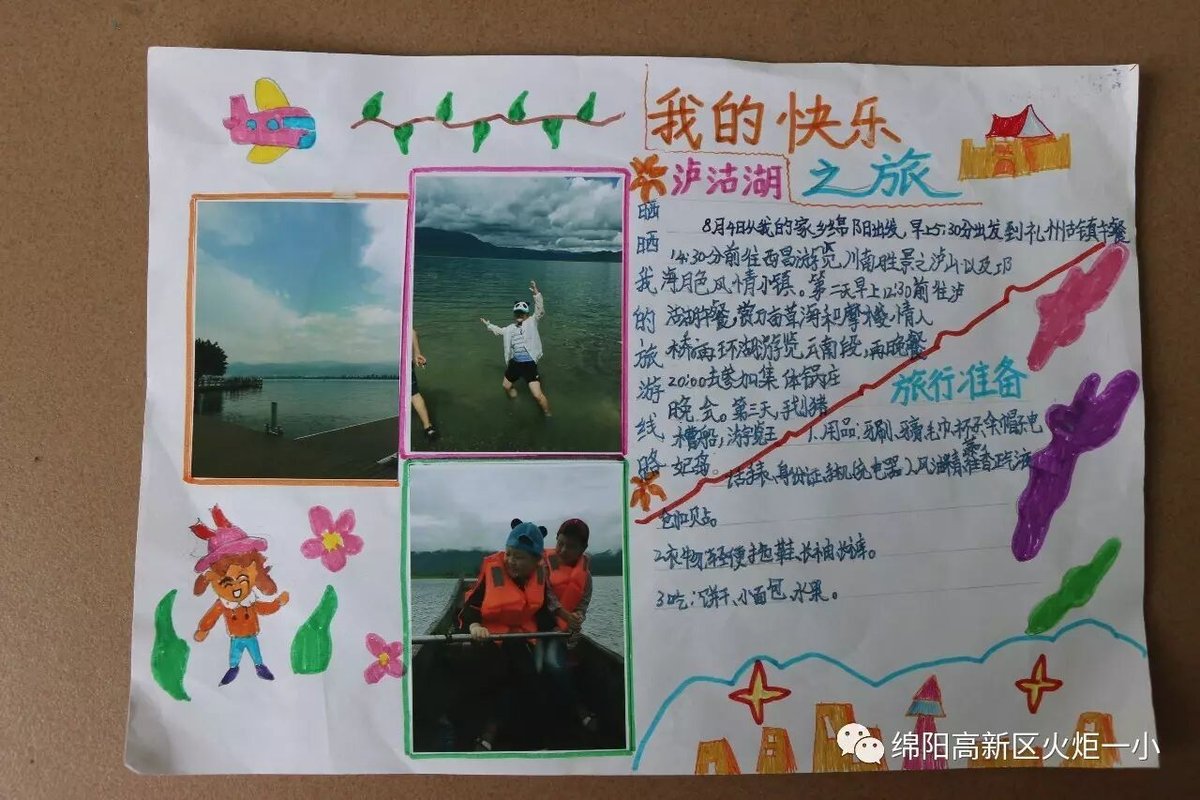 我的快乐
泸沽湖之旅
晒晒我的旅游线路
8月4日从我的家乡绵阳出发,早上5:30分出发到礼州古镇午餐
14:30分前往西昌游览,川南胜景之泸山以及邛
海月色风情小镇。第二天早上12:30前往泸
沽湖午餐,赏万亩草海和摩梭,情人
桥再环湖游览云南段,再晚餐
20:00去参加集体锅庄
晚会。第三天,手划猪
槽船,游览王
妃岛。
旅行准备
1.用品:牙刷、牙膏毛巾杯子伞帽子电
话手表、身份证手机充电器 风油精藿香正气液
创口贴。
2.衣物:轻便拖鞋、长袖长裤。
3.吃:饼干、小面包、水果。
绵阳高新区火炬一小